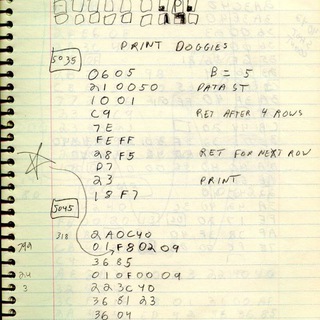 PRINT DOGGIES
5035
0605 B = 5
210050 DATA ST
1001
C9 RET AFTER 4 ROWS
7E
FEFF
28 F5 RET FOR NEXT ROW
D7
23 PRINT
18 F7
5045
318 2A0C40
01F80209
3685
010F00 09
3 223C40
36 81 23
36 04